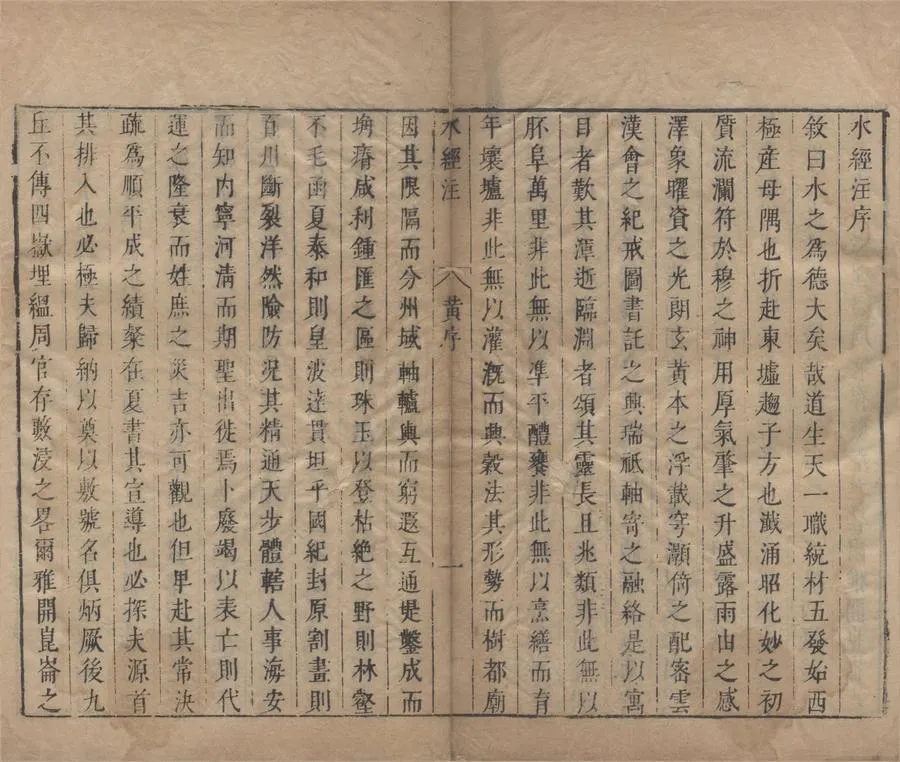 水經注序
敘曰水之爲德大矣哉道生天一職統材五發始西
極産母隅也折赴東墟趨子方也濈涌昭化妙之初
質流瀾符於穆之神用厚氣肇之升盛露雨由之感
澤象曜資之光朗玄黄本之浮載穹灝倚之配密雲
漢會之紀戒圖書託之興瑞祗軸寄之融絡是以寓
目者歎其潭逝臨淵者頌其靈長且兆類非此無以
胚阜萬里非此無以凖平醴饔非此無以烹繕而育
年壤壚非此無以灌漑而興穀法其形勢而樹都廟
水經注 黄序 一
因其限隔而分州域軸轤輿而窮遐互通堤鑿成而
埆瘠咸利鍾匯之區則珠玉以登枯絶之野則林壑
不毛函夏泰和則皇波逹貫坦平國紀封原割畫則
百川斷裂洋然險防况其精通天步體轄人事海安
而知内寧河淸而期聖出徙焉卜廢竭以表亡則代
運之隆衰而姓庶之災吉亦可觀也但甲赴其常決
疏爲順平成之績粲在夏書其宣導也必探夫源首
其耕入也必極夫歸納以奠以敷號名俱炳厥後九
丘不傳四嶽埋緼周官存藪浸之畧爾雅開崑崙之